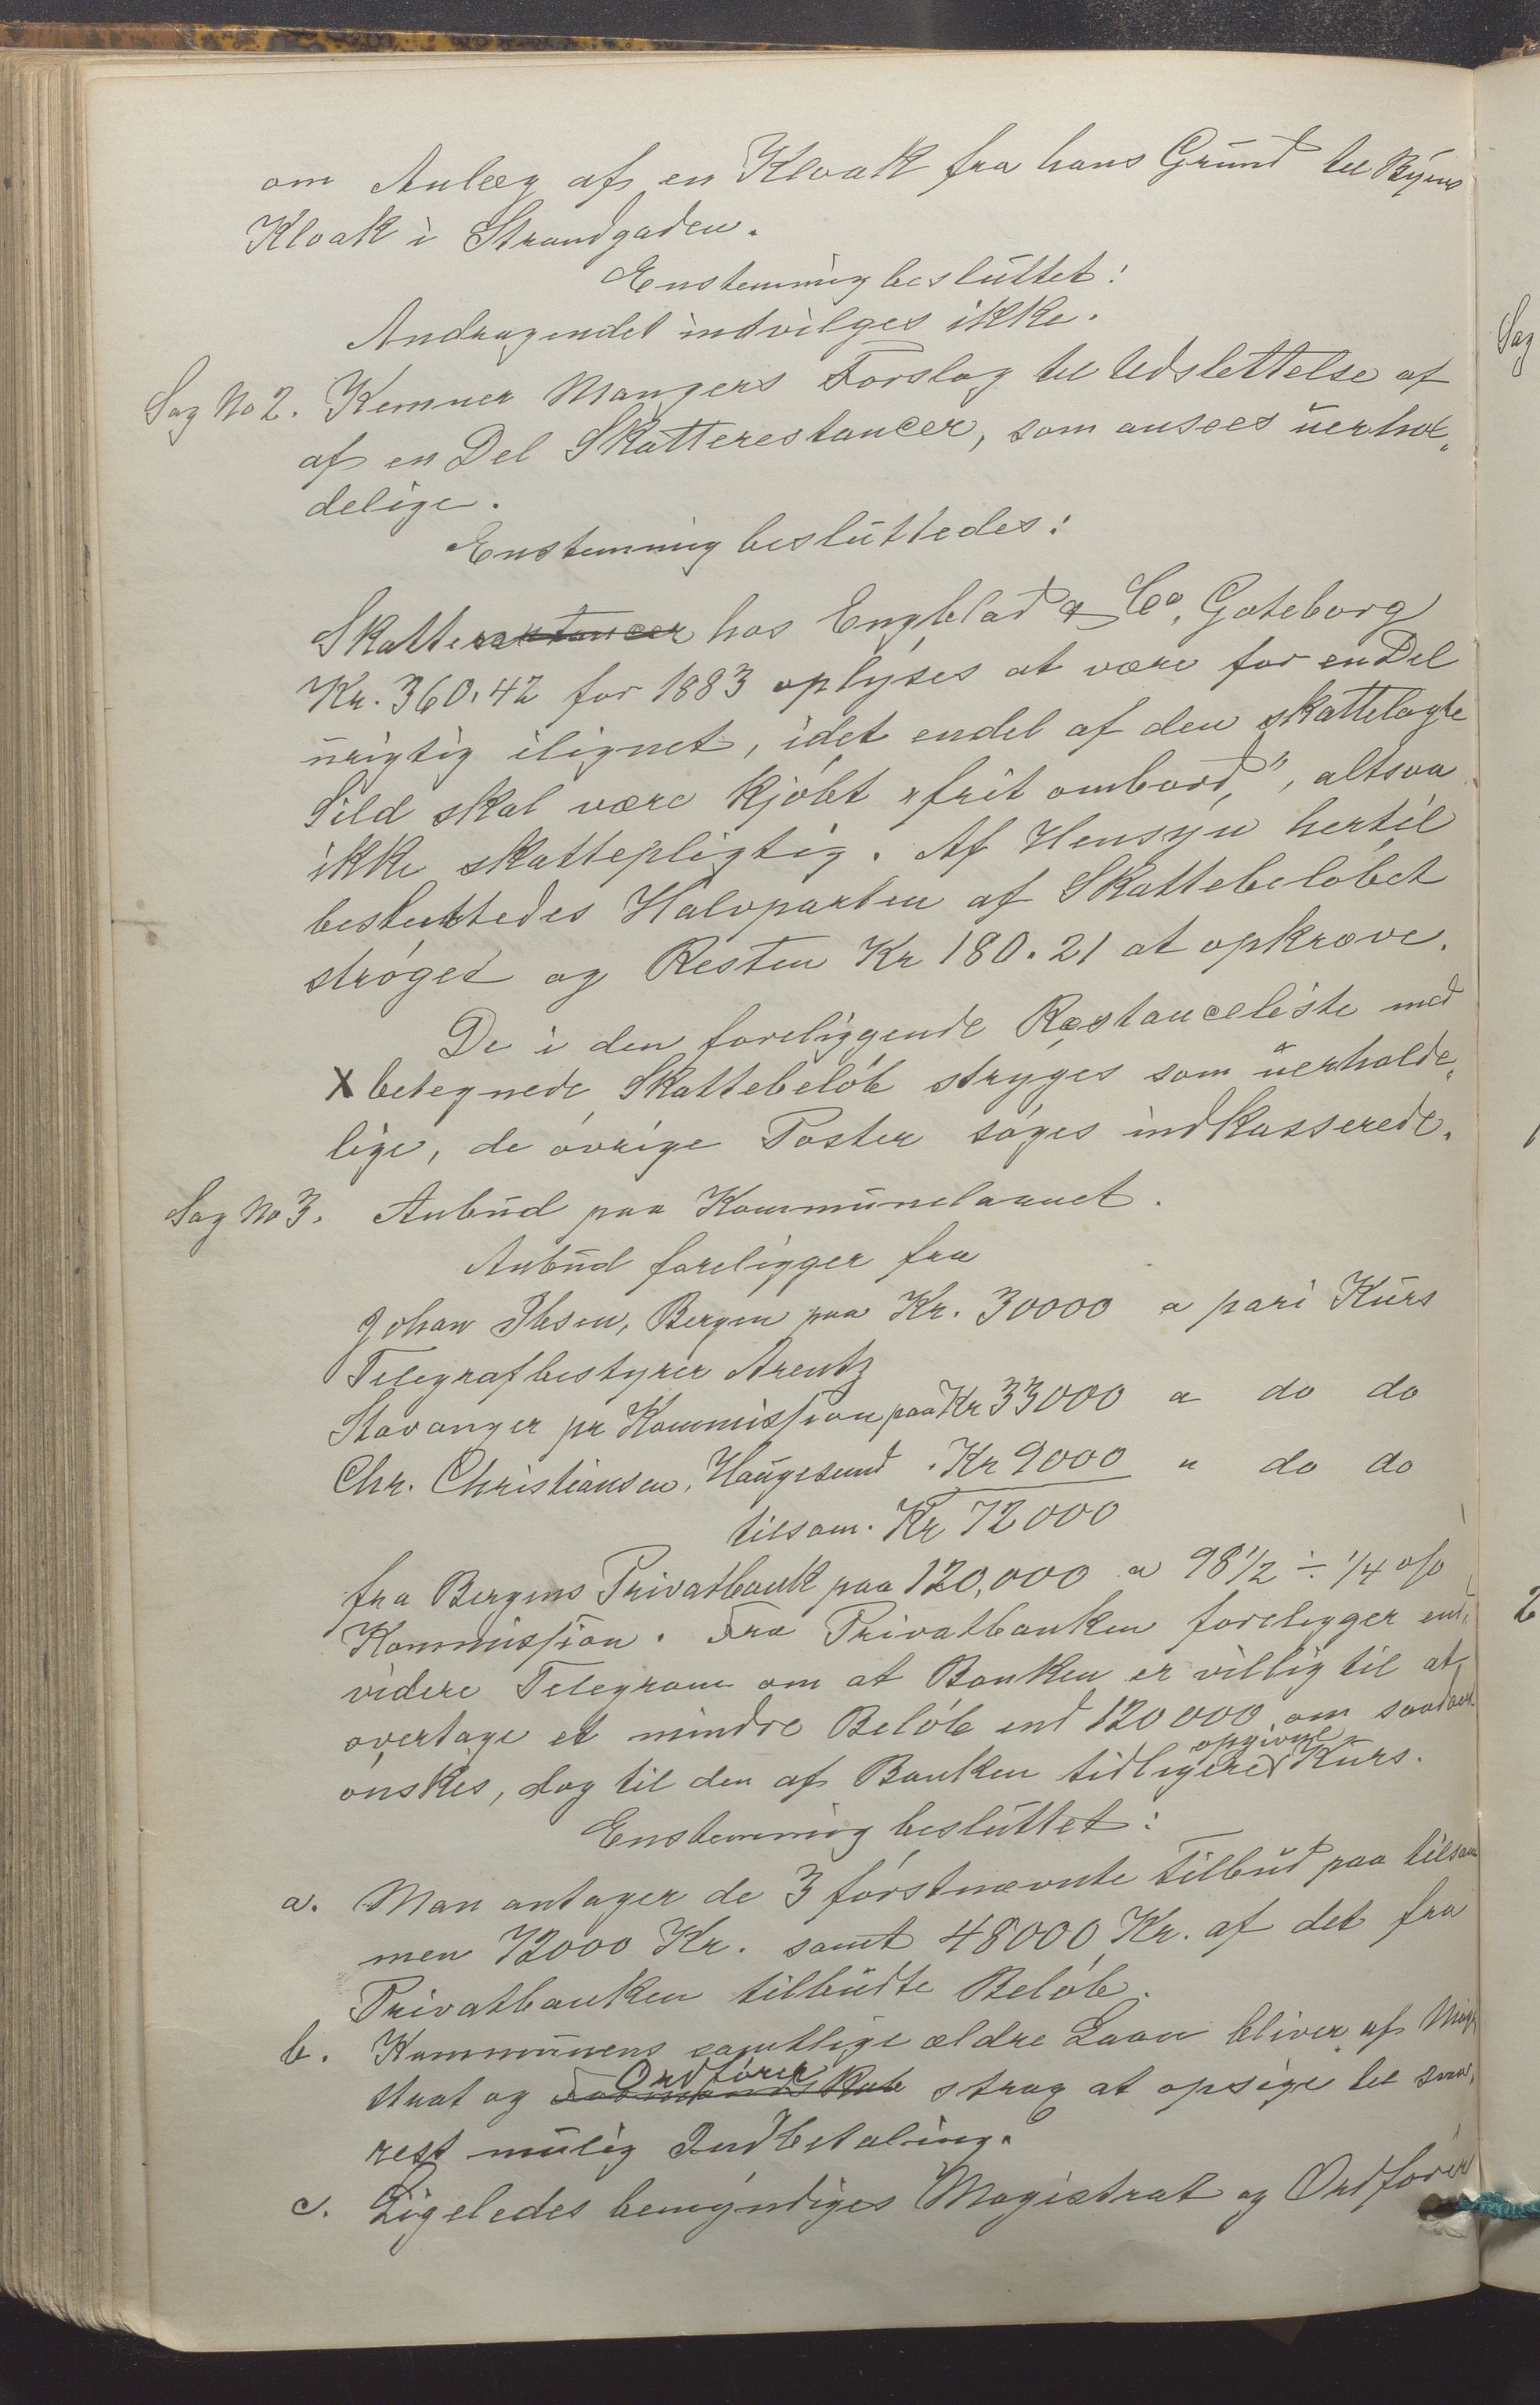 om Anlæg af en Kloak fra hans Grund til Byens
Kloak i Strandgaden.
Enstemmig besluttet:
Andragendet indvilges ikke.
Sag No 2. Kemner Mangers Forslag til Udslettelse af
af en Del Skatterestancer, som ansees uerhol„
delige.
Enstemmig besluttedes:
Skatterestancer hos Engblad & Co, Goteborg
Kr. 360.42 for 1883 oplyses at være for en Del
urigtig ilignet, idet endel af den skattelagte
Sild skal være kjøbt „frit ombord”, altsaa
ikke skattepligtig. Af Hensyn hertil
besluttedes Halvparten af Skattebeløbet
strøget og Resten Kr 180.21 at opkræve.
De i den foreliggende Restanceliste med
X betegnede Skattebeløb stryges som uerholde„
lige, de øvrige Poster søges indkasserede.
Sag No 3. Anbud paa Kommunelaanet.
Anbud foreligger fra
Johan Ibsen, Bergen paa Kr. 30000 a pari Kurs
Telegrafbestyrer Arentz
Stavanger pr Kommission paa Kr 33000 a do do
Chr. Christiansen, Haugesund . Kr 9000 " do do
tilsam. Kr 72000
fra Bergens Privatbank paa 120,000 a 98 1/2 ÷ 1/4 o/o
Kommission. Fra Privatbanken foreligger end„
videre Telegram om at Banken er villig til at
overtage et mindre Beløb end 120000 om saadant
ønskes, dog til den af Banken tidligere opgivne Kurs.
Enstemmig besluttet:
a. Man antager de 3 førstnævnte Tilbud paa tilsam
men 72000 Kr. samt 48000 Kr. af det fra
Privatbanken tilbudte Beløb.
b. Kommunens samtlige ældre Laan bliver af Magi
strat og Formandskab Ordfører strax at opsige til sna„
rest mulig Indbetaling.
c. Ligeledes bemyndiges Magistrat og Ordfører